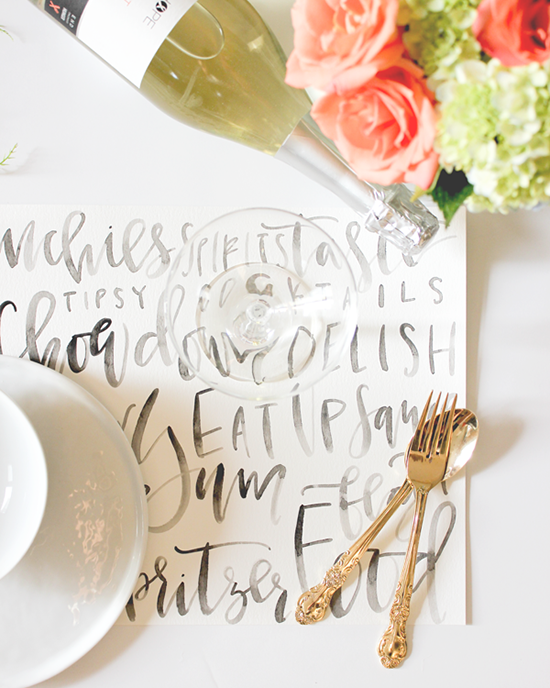 nchies SPIRITS taste
TIPSY COCKTAILS
Chow down DELISH
EAT UP
Yum
pritzer Food